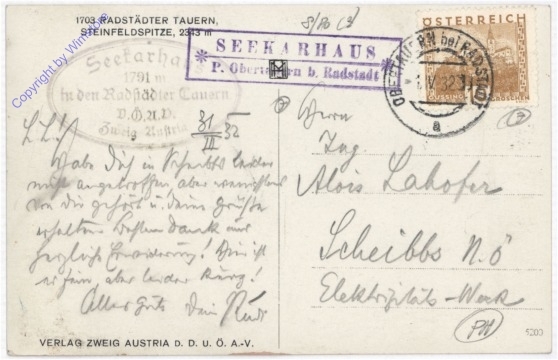 1703 RADSTÄDTER TAUERN,
STEINFELDSPITZE, 2343 m
Copyright by
SEEKARHAUS
P. Obertauern b. Radstadt
OBERTAUERN bei RADSTADT
a
ÖSTERREICH
GÜSSING
GROSCHEN
Seekarhaus
1791 m
in den Radstädter Tauern
D.Ö.A.V.
Zweig Austria
31 32
III
Habe Dich in Scheibbs leider
nicht angetroffen aber wenigstens
von Dir gehört u. Deine Grüße
erhalten. Besten Dank und
herzliche Erwiderung! Hier ist
es fein, aber leider kurz!
Alles Gute Dein Rudi
Herrn
Ing.
Alois Lahofer
Scheibbs N.Ö
Elektrizitäts-Werk
PH
5200
VERLAG ZWEIG AUSTRIA D. D. U. Ö. A.-V.